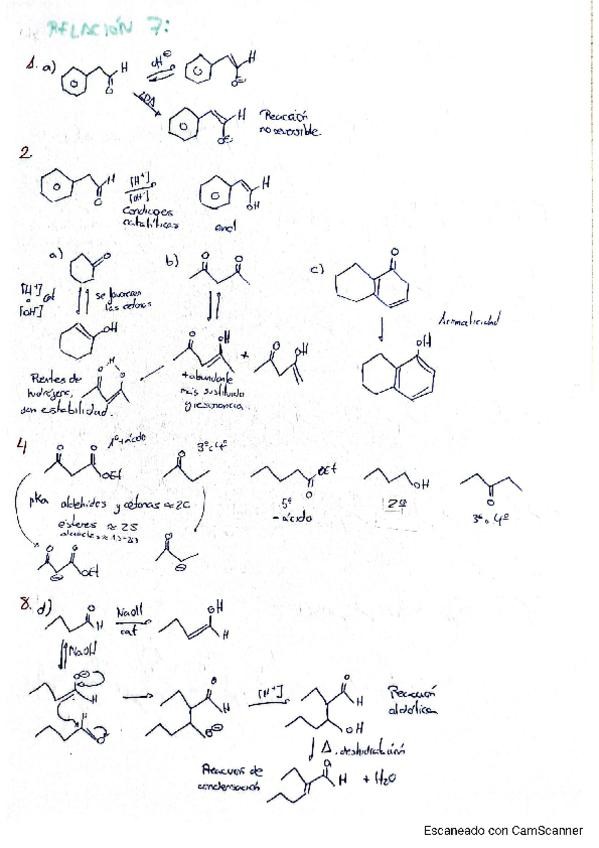 RELACIÓN 7:
1. a)
H
OH⊖
H
O
O⊖
LDA
H
O⊖
Reacción
no reversible.
2
H
O
[H⁺]
[OH⁻]
Condiciones
catalíticas
H
OH
enol
a)
O
b)
O O
c)
O
[H⁺]
ó
[OH⁻]
cat
se favorecen
las cetonas
OH
Aromaticidad
OH
O OH
+
O OH
Puentes de
hidrógeno,
dan estabilidad.
O H O
+ abundante
más sustituido
y resonancia.
4
O O
OEt
1º + ácido
O
3º o 4º
OEt
O
5º
- ácido
OH
2º
O
3º o 4º
pKa aldehídos y cetonas ≈ 20
ésteres ≈ 25
O O
⊖ OEt
O
⊖
8. d)
O
H
NaOH
cat
OH
H
NaOH
O⊖
H
H
O
O
H
O⊖
[H⁺]
O
H
OH
Reacción
aldólica
Δ. deshidratación
Reacción de
condensación
O
H
+ H₂O
Escaneado con CamScanner